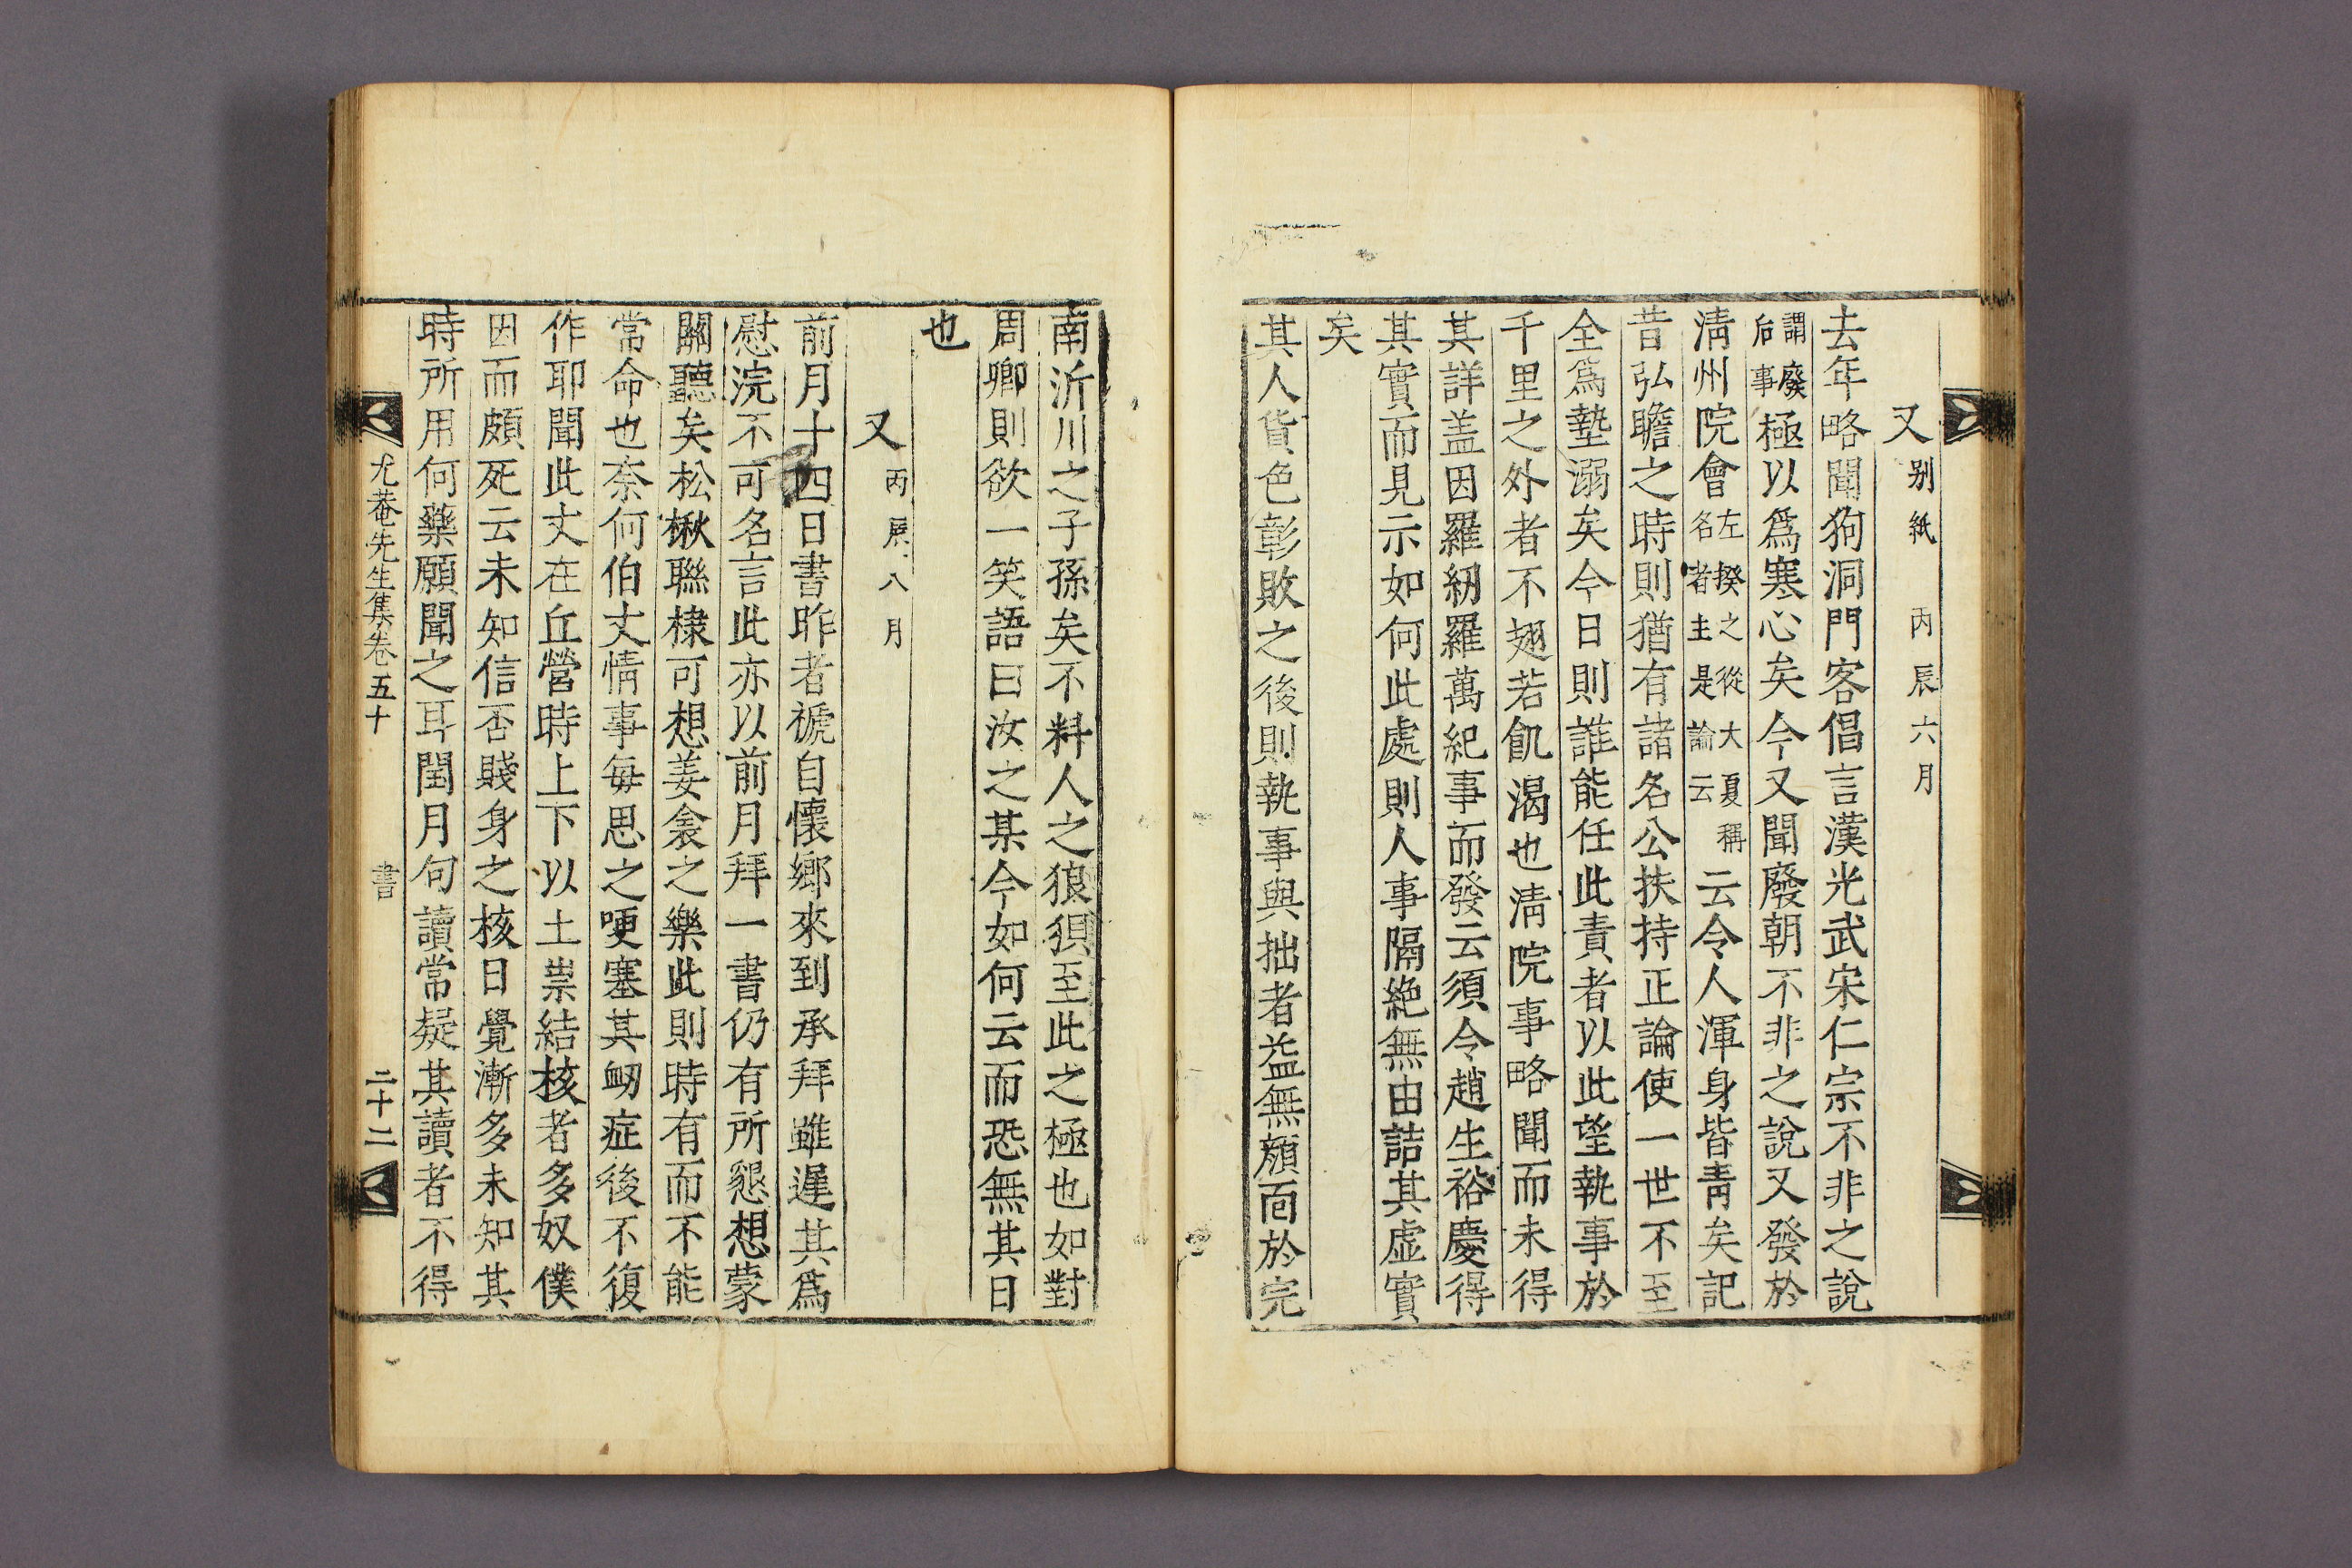 又 别紙 丙辰六月
去年略聞狗洞門客倡言漢光武宋仁宗不非之說
謂廢后事極以爲寒心矣今又聞廢朝不非之說又發於
淸州院會左揆之從大夏稱名者主是論云云令人渾身皆靑矣記
昔弘瞻之時則猶有諸名公扶持正論使一世不至
全爲墊溺矣今日則誰能任此責者以此望執事於
千里之外者不翅若飢渴也淸院事略聞而未得
其詳盖因羅紉羅萬紀事而發云須令趙生裕慶得
其實而見示如何此處則人事隔絶無由詰其虛實
矣
其人貨色彰敗之後則執事與拙者益無顔面於完
南沂川之子孫矣不料人之狼狽至此之極也如對
周卿則欲一笑語曰汝之某今如何云而恐無其日
也
又 丙辰八月
前月十四日書昨者褫自懷鄕來到承拜雖遲其爲
慰浣不可名言此亦以前月拜一書仍有所懇想蒙
關聽矣松楸聯棣可想姜衾之樂此則時有而不能
常命也奈何伯丈情事每思之哽塞其衂症後不復
作耶聞此丈在丘營時上下以土祟結核者多奴僕
因而頗死云未知信否賤身之核日覺漸多未知其
時所用何藥願聞之耳閏月句讀常疑其讀者不得
尤菴先生集卷五十 書 二十二